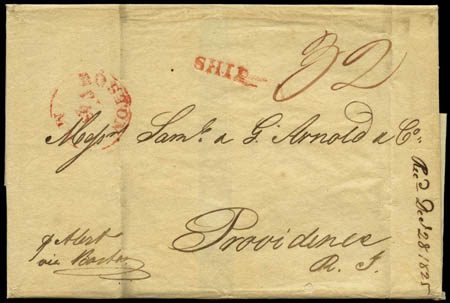 SHIP
32
BOSTON
MS
Messrs Saml. & G. Arnold & Co.
Providence
R. I.
p Alert
via Boston
Recd Dec 28 1825